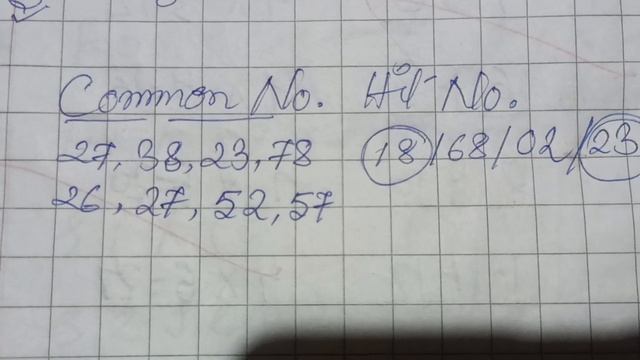 Common No. Hit No.
27, 38, 23, 78 18/68/02/23
26, 27, 52, 57